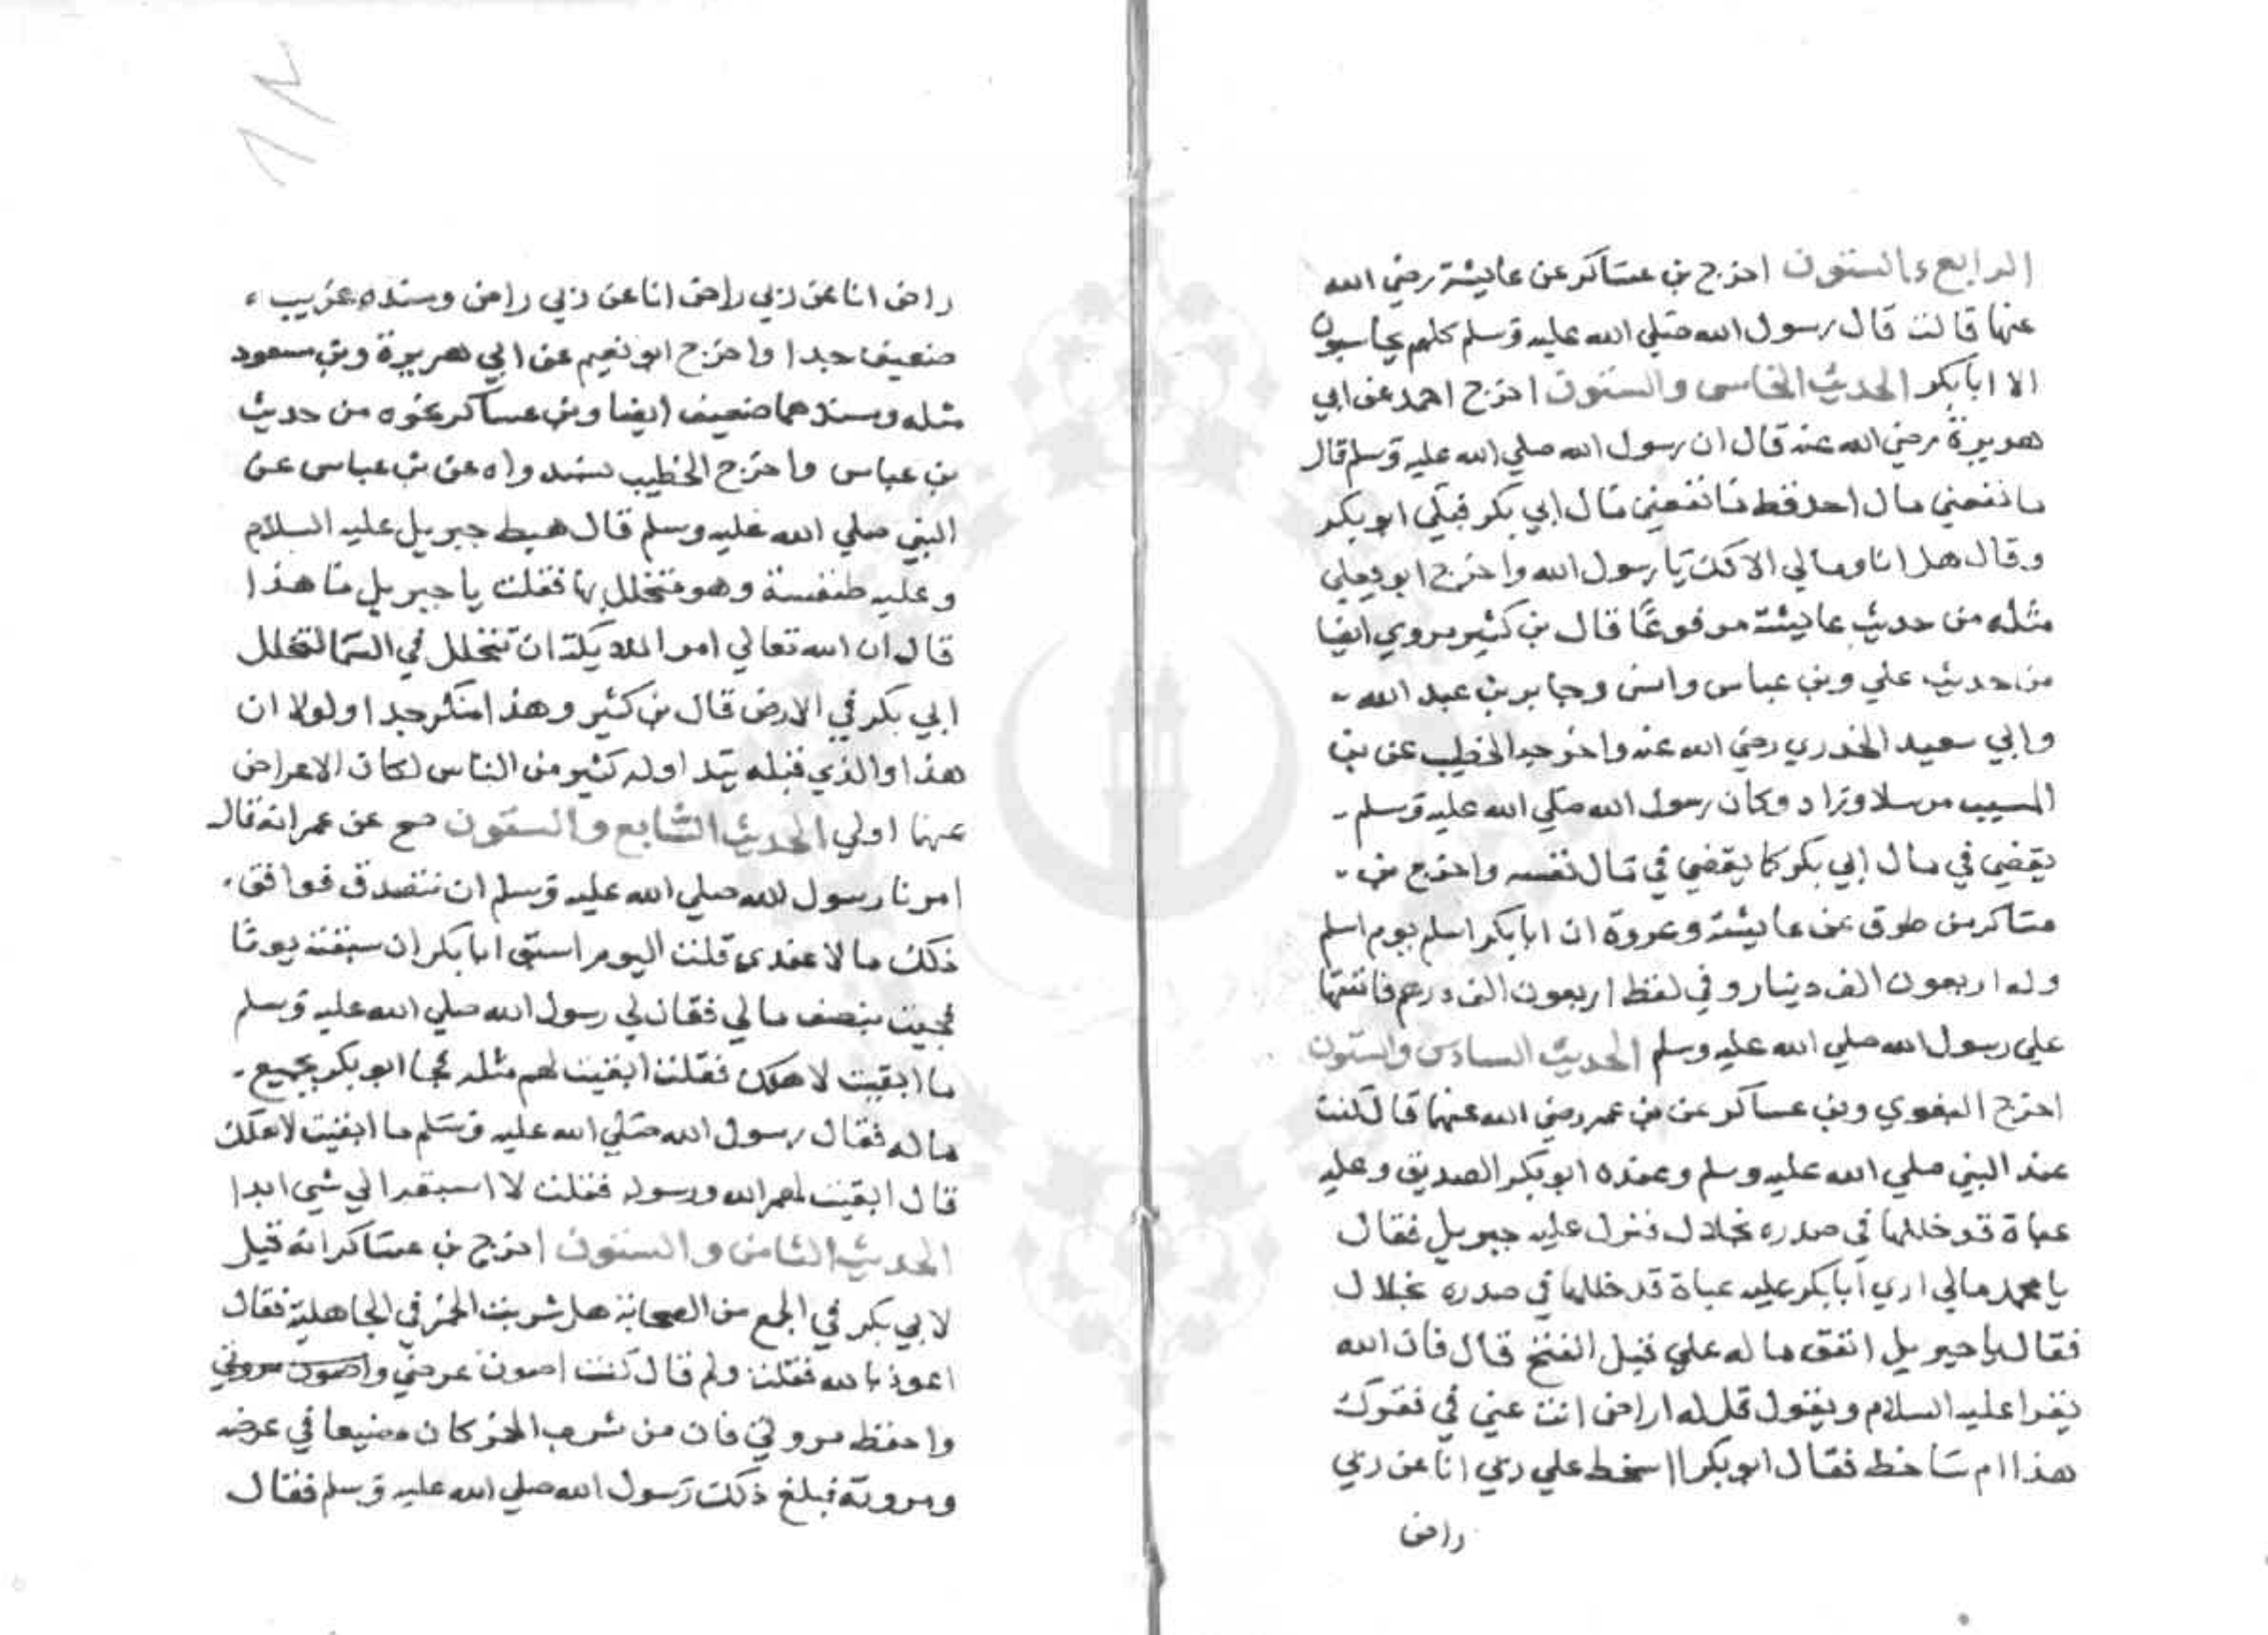 الرابع والستون اخرج بن عساكر عن عايشة رضي الله
عنها قالت قال رسول الله صلي الله عليه وسلم كلهم يحاسبون
الا ابا بكر الحديث الخامس والستون اخرج احمد عن ابي
هريرة رضي الله عنه قال ان رسول الله صلي الله عليه وسلم قال
ما نفعني مال احد قط ما نفعني مال ابي بكر فبكي ابو بكر
وقال هل انا ومالي الا لك يا رسول الله واخرج ابو يعلي
مثله من حديث عايشة مرفوعا قال بن كثير مروي ايضا
من حديث علي وبن عباس وانس وجابر بن عبد الله
وابي سعيد الخدري رضي الله عنه واخرجه الخطيب عن بن
المسيب مرسلا وزاد وكان رسول الله صلي الله عليه وسلم
يقضي في مال ابي بكر كما يقضي في مال نفسه واخرج بن
عساكر من طرق عن عايشة وعروة ان ابا بكر اسلم يوم اسلم
وله اربعون الف دينار وفي لفظ اربعون الف درهم فانفقها
علي رسول الله صلي الله عليه وسلم الحديث السادس والستون
اخرج البغوي وبن عساكر عن بن عمر رضي الله عنهما قال كنت
عند النبي صلي الله عليه وسلم وعنده ابو بكر الصديق وعليه
عباة قد خللها في صدره بخلال فنزل عليه جبريل فقال
يا محمد مالي اري ابا بكر عليه عباة قد خللها في صدره بخلال
فقال يا جبريل انفق ماله علي قبل الفتح قال فان الله
يقرا عليه السلام ويقول قل له اراض انت عني في فقرك
هذا ام ساخط فقال ابو بكر ااسخط علي ربي انا عن ربي
راض
راض انا عن ربي راض انا عن ربي راض وسنده غريب
ضعيف جدا واخرج ابو نعيم عن ابي هريرة وبن مسعود
مثله وسندهما ضعيف ايضا وبن عساكر نحوه من حديث
بن عباس واخرج الخطيب بسند واه عن بن عباس عن
النبي صلي الله عليه وسلم قال هبط جبريل عليه السلام
وعليه طنفسة وهو متخلل بها فقلت يا جبريل ما هذا
قال ان الله تعالي امر الملايكة ان تتخلل في السما لتخلل
ابي بكر في الارض قال بن كثير وهذا منكر جدا ولولا ان
هذا والذي قبله يتداوله كثير من الناس لكان الاعراض
عنهما اولي الحديث السابع والستون صح عن عمر انه قال
امرنا رسول الله صلي الله عليه وسلم ان نتصدق فوافق
ذلك مالا عندي قلت اليوم اسبق ابا بكر ان سبقته يوما
فجيت بنصف مالي فقال لي رسول الله صلي الله عليه وسلم
ما ابقيت لاهلك فقلت ابقيت لهم مثله فجا ابو بكر بجميع
ماله فقال رسول الله صلي الله عليه وسلم ما ابقيت لاهلك
قال ابقيت لهم الله ورسوله فقلت لا اسبقه الي شي ابدا
الحديث الثامن والستون اخرج بن عساكر انه قيل
لابي بكر في الجمع من الصحابة هل شربت الخمر في الجاهلية فقال
اعوذ بالله فقلت ولم قال كنت اصون عرضي واصون مروتي
واحفظ مروتي فان من شرب الخمر كان مضيعا في عرضه
ومروته فبلغ ذلك رسول الله صلي الله عليه وسلم فقال